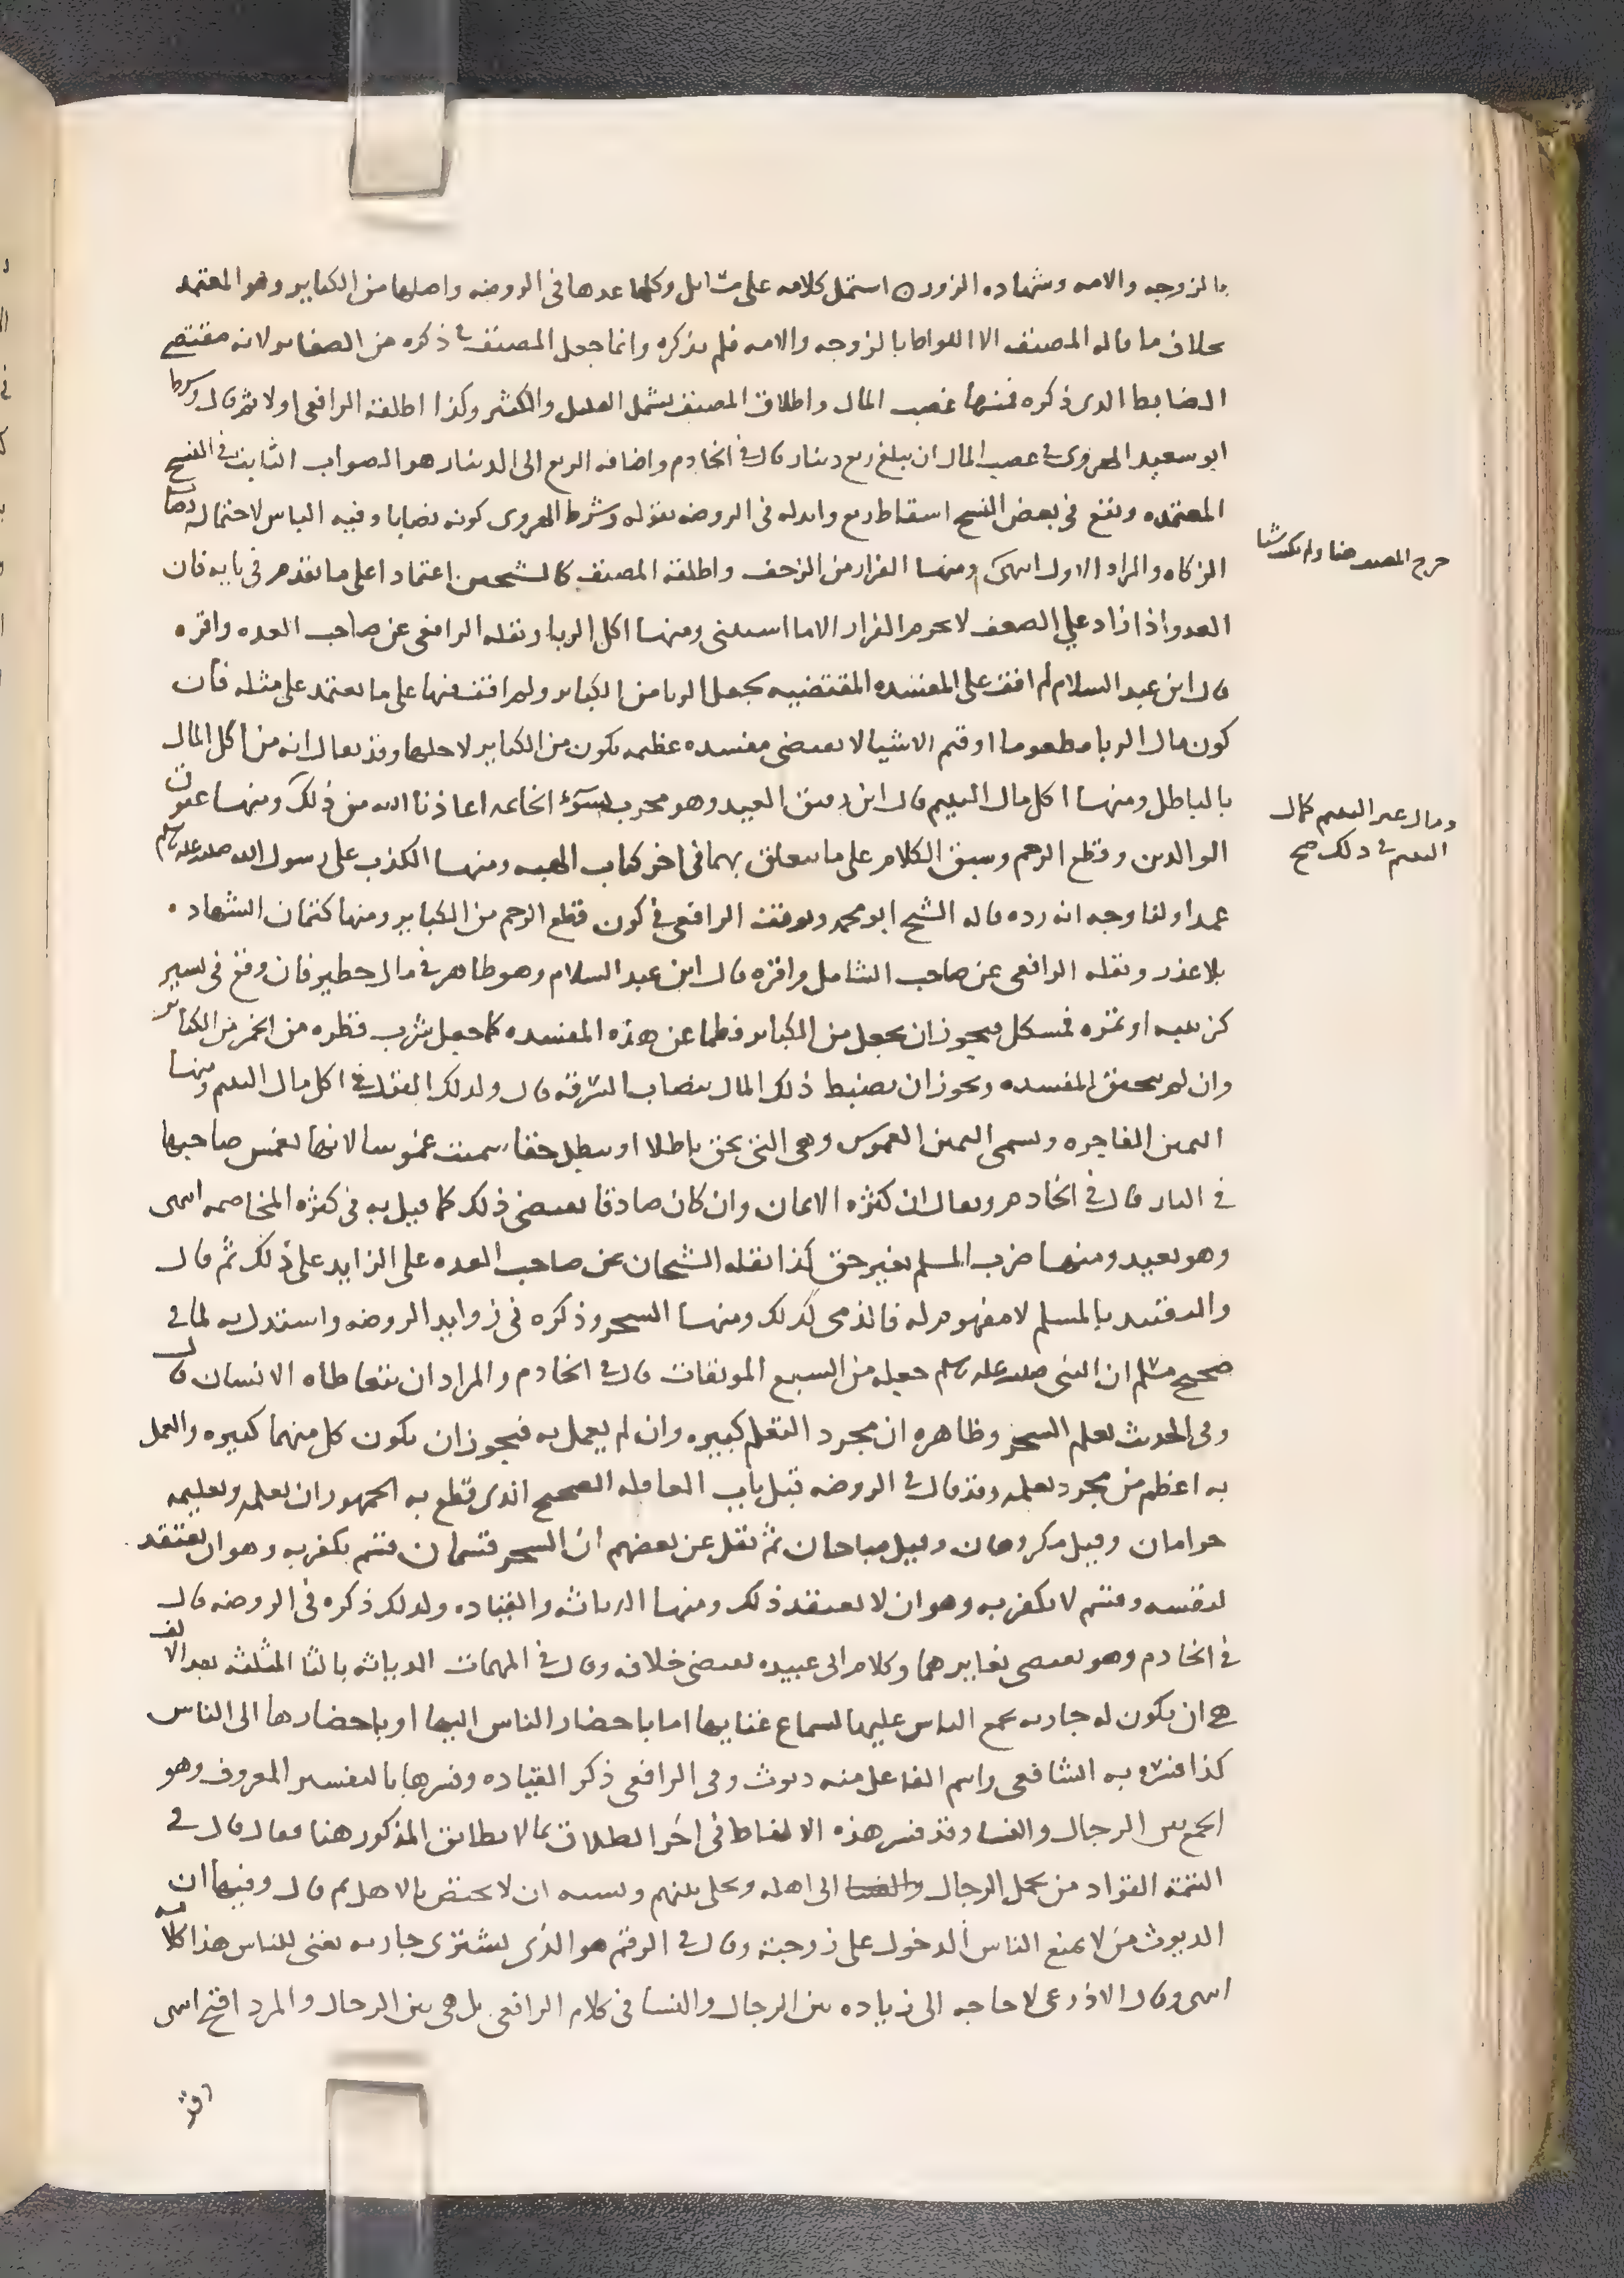 بالزوجه والامه وشهاده الزور ه اشتمل كلامه على مسايل وكلها عدها فى الروضه واصلها من الكباير وهو المعتمد
بخلاف ما قاله المصنف الا اللواط بالزوجه والامه فلم يذكره وانما جعل المصنف ما ذكره من الصغاير لانه مقتضى
الضابط الدى ذكره فمنها غصب المال واطلاق المصنف يشمل القليل والكثير وكذا اطلقه الرافعى اولا ثم قال وشرط
ابو سعيد الهروى فى غصب المال ان يبلغ ربع دينار قال فى الخادم واضافه الربع الى الدينار هو الصواب الثابت فى النسخ
المعتمده ويقع فى بعض النسخ اسقاط ربع وابدله فى الروضه بقوله وشرط الهروى كونه نصابا وفيه الباس لاحتماله نصاب
الزكاه والمراد الاول انتهى ومنها الفرار من الزحف واطلقه المصنف كالشيخين اعتمادا على ما تقدم فى بابه فان
العدو اذا زاد على الضعف لا يحرم الفرار الا ما استثنى ومنها اكل الربا ونقله الرافعى عن صاحب العده واقره
قال ابن عبد السلام لم اقف على المفسده المقتضيه لجعل الربا من الكباير ولم اقف فيها على ما يعتمد على مثله فان
كون مال الربا مطعوما او قيم الاشيا لا يقتضى مفسده عظيمه يكون من الكباير لاجلها وقد يقال انه من اكل المال
بالباطل ومنها اكل مال اليتيم قال ابن دقيق العيد وهو مجرب لسوء الخاتمه اعاذنا الله من ذلك ومنها عقوق
الوالدين وقطع الرحم وسبق الكلام على ما يتعلق بهما فى اخر كتاب الهبه ومنها الكذب على رسول الله صلى الله عليه وسلم
عمدا ولنا وجه انه رده قاله الشيخ ابو محمد وتوقف الرافعى فى كون قطع الرحم من الكباير ومنها كتمان الشهاد
بلا عذر ونقله الرافعى عن صاحب الشامل واقره قال ابن عبد السلام وهو ظاهر فى مال خطير فان وقع فى يسير
كزبيبه او تمره فمشكل فيجوز ان يجعل من الكباير فطما عن هذه المفسده كما جعل شرب قطره من الخمر من الكباير
وان لم يتحقق المفسده ويجوز ان يضبط ذلك المال بنصاب السرقه قال ولذلك القول فى اكل مال اليتيم ومنها
اليمين الفاجره وتسمى اليمين الغموس وهى التى يحق باطلا او يبطل حقا سميت غموسا لانها تغمس صاحبها
فى النار قال فى الخادم ويقال ان كثره الايمان وان كان صادقا يقتضى ذلك كما قيل به فى كثره المخاصمه انتهى
وهو بعيد ومنها ضرب المسلم بغير حق كذا نقله الشيخان عن صاحب العده على الزايد على ذلك ثم قال
والتقييد بالمسلم لا مفهوم له فالذمى كذلك ومنها السحر وذكره فى زوايد الروضه واستدل به لما فى
صحيح مسلم ان النبى صلى الله عليه وسلم جعله من السبع الموبقات قال فى الخادم والمراد ان يتعاطاه الانسان قال
وفى الحديث تعلم السحر وظاهره ان مجرد التعلم كبيره وان لم يعمل به فيجوز ان يكون كل منهما كبيره والعمل
به اعظم من مجرد تعلمه وقد قال فى الروضه قبل باب العاقله الصحيح الذى قطع به الجمهور ان تعلمه وتعليمه
حرامان وقيل مكروهان وقيل مباحان ثم نقل عن بعضهم ان السحر قسمان قسم يكفر به وهو ان يعتقد
لنفسه وقسم لا يكفر به وهو ان لا يعتقد ذلك ومنها الدياثه والقياده ولذلك ذكره فى الروضه قال
فى الخادم وهو يقتضى تغايرهما وكلام ابى عبيده يقتضى خلافه وقال فى المهمات الدياثه بالثا المثلثه بعد الالف
هى ان يكون له جاريه يجمع الناس عليها لسماع غنايها اما باحضار الناس اليها او باحضارها الى الناس
كذا فسره به الشافعى واسم الفاعل منه ديوث وفى الرافعى ذكر القياده وفسرها بالتفسير المعروف وهو
الجمع بين الرجال والنسا وقد فسر هذه الالفاظ فى اخر الطلاق بما لا يطابق المذكور هنا فقال قال فى
التتمة القواد من يحمل الرجال والنسا الى اهله ويخلى بينهم ويشبه ان لا يختص بالاهل ثم قال وفيها ان
الديوث من لا يمنع الناس الدخول على زوجته وقال فى الرقم هو الذى يشترى جاريه تغنى للناس هذا كلامه
انتهى وقال الاذرعى لا حاجه الى زياده بين الرجال والنسا فى كلام الرافعى بل هى بين الرجال والمرد اقبح انتهى
وقد
ومال غير اليتيم كمال
اليتيم فى ذلك صح